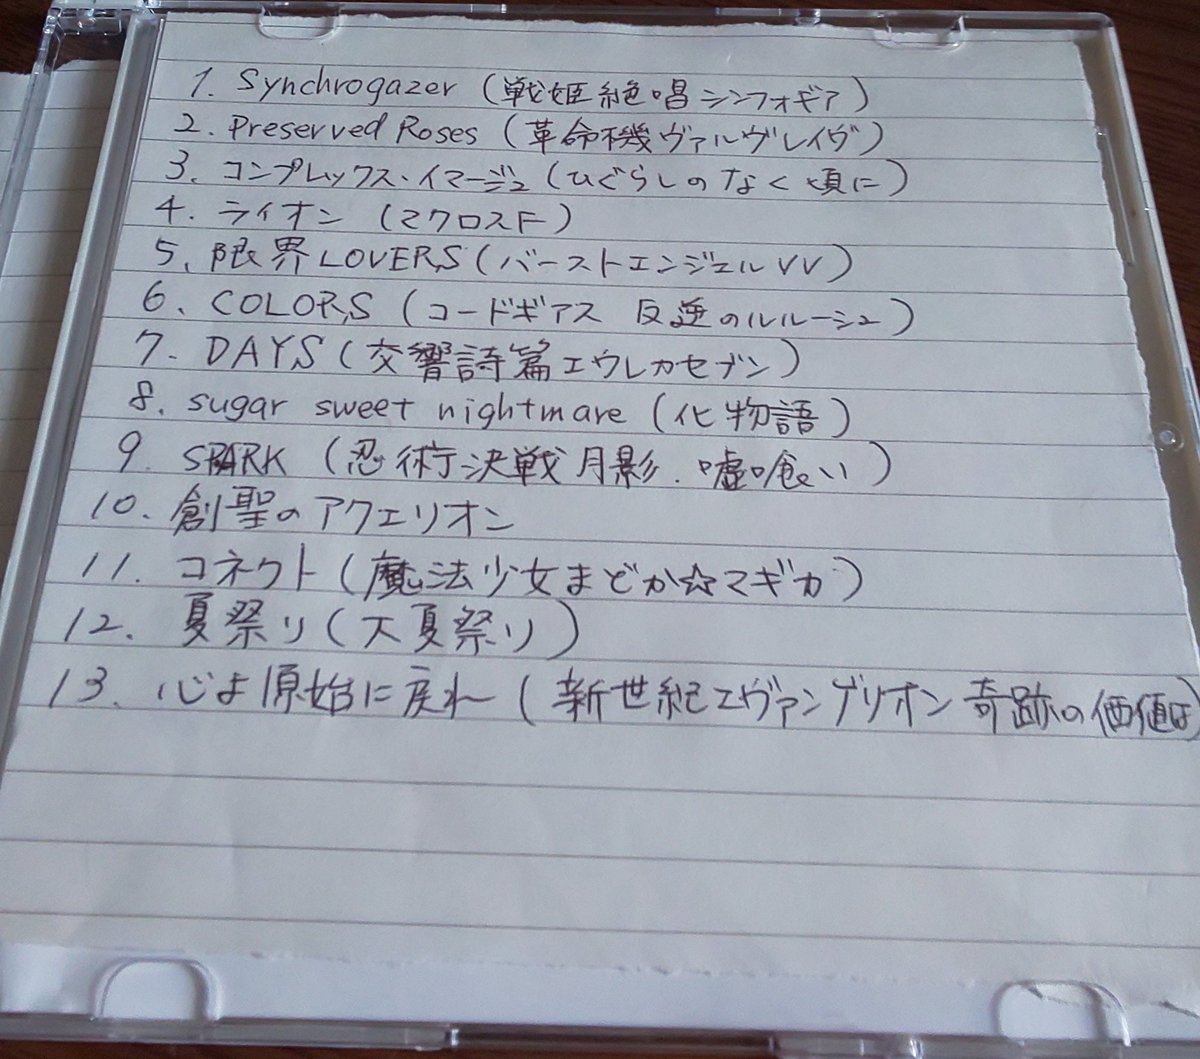 1. Synchrogazer (戦姫絶唱シンフォギア)
2. Preserved Roses (革命機ヴァルヴレイヴ)
3. コンプレックス・イマージュ (ひぐらしのなく頃に)
4. ライオン (マクロスF)
5. 限界LOVERS (バーストエンジェルVV)
6. COLORS (コードギアス 反逆のルルーシュ)
7. DAYS (交響詩篇エウレカセブン)
8. sugar sweet nightmare (化物語)
9. SPARK (忍術決戦月影. 嘘喰い)
10. 創聖のアクエリオン
11. コネクト (魔法少女まどか☆マギカ)
12. 夏祭り (大夏祭り)
13. 心よ原始に戻れ (新世紀エヴァンゲリオン 奇跡の価値は)